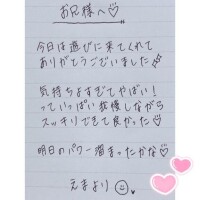 お兄様へ♡
今日は遊びに来てくれて
ありがとうございました
気持ちよすぎてやばい！
っていっぱい我慢しながら
スッキリできて良かった♡
明日のパワー溜まったかな♡
えまより